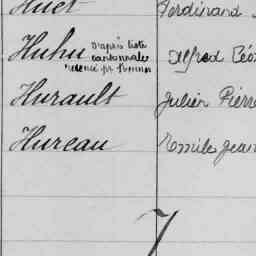 Huet Ferdinand
Huhu d'après liste cantonale Alfred Léo
Hurault Julien Pierre
Hureau Emile Jean
7